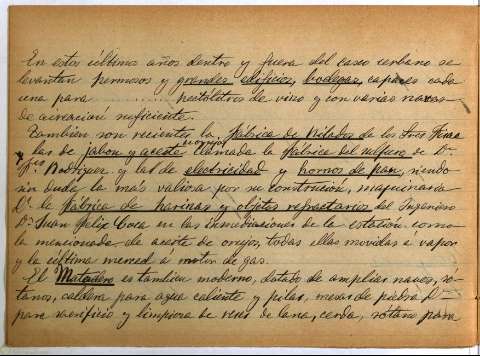 En estos últimos años dentro y fuera del casco urbano se
levantan hermosos y grandes edificios, bodegas, capaces cada
una para .......... hectólitros de vino y con varias naves
de aereación suficiente.
También son recientes la fábrica de Hilados de los Sres
las de jabon y aceite de orujo llamada la fábrica del sulfuro de Dn
Rodriguez, y la de electricidad y hornos de pan, siendo
sin duda la más valiosa por su construcción, maquinaria
la fábrica de harinas y objetos refractarios del Ingeniero
Dn Juan Felix Coca en las inmediaciones de la estación, como
la mencionada de aceite de orujos, todas ellas movidas a vapor
y la última merced a motor de gas.
El Matadero es tambien moderno, dotado de amplias naves, só-
tanos, caldera para agua caliente y pilas, mesas de piedra
para sacrificio y limpieza de reses de lana, cerda, sótano para